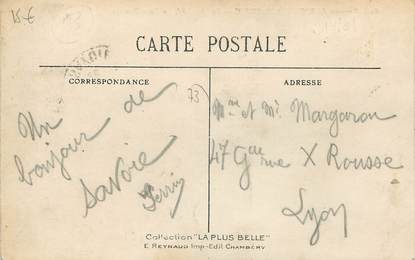 15€
CARTE POSTALE
CORRESPONDANCE
ADRESSE
73
Un
bonjour de
Savoie
Perrin
Mme et Mr Margaron
47 Gde rue X Rousse
Lyon
Collection "LA PLUS BELLE"
E. REYNAUD Imp-Edit CHAMBÉRY